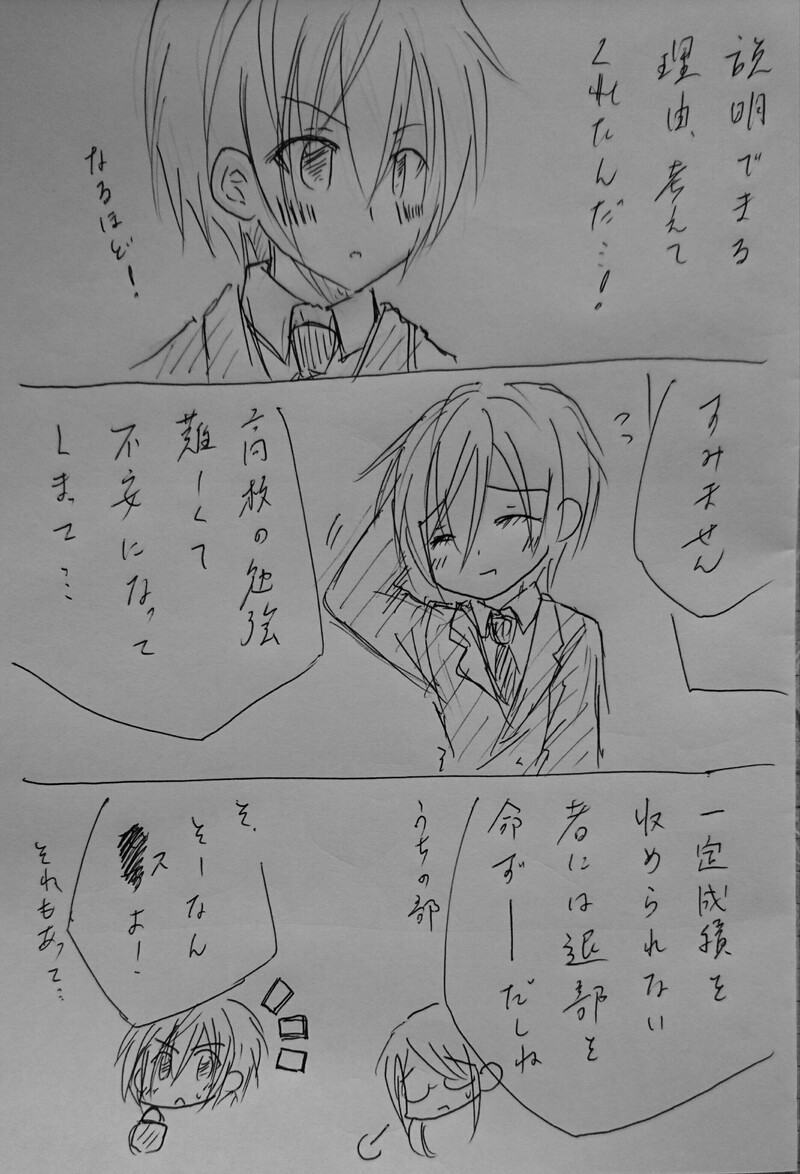 説明できる
理由、考えて
くれたんだ…!
なるほど!
すみません
高校の勉強
難しくて
不安になって
しまって…
一定成績を
収められない
者には退部を
命ずーだしね
うちの部
そ、
そーなん
スよー!
それもあって…